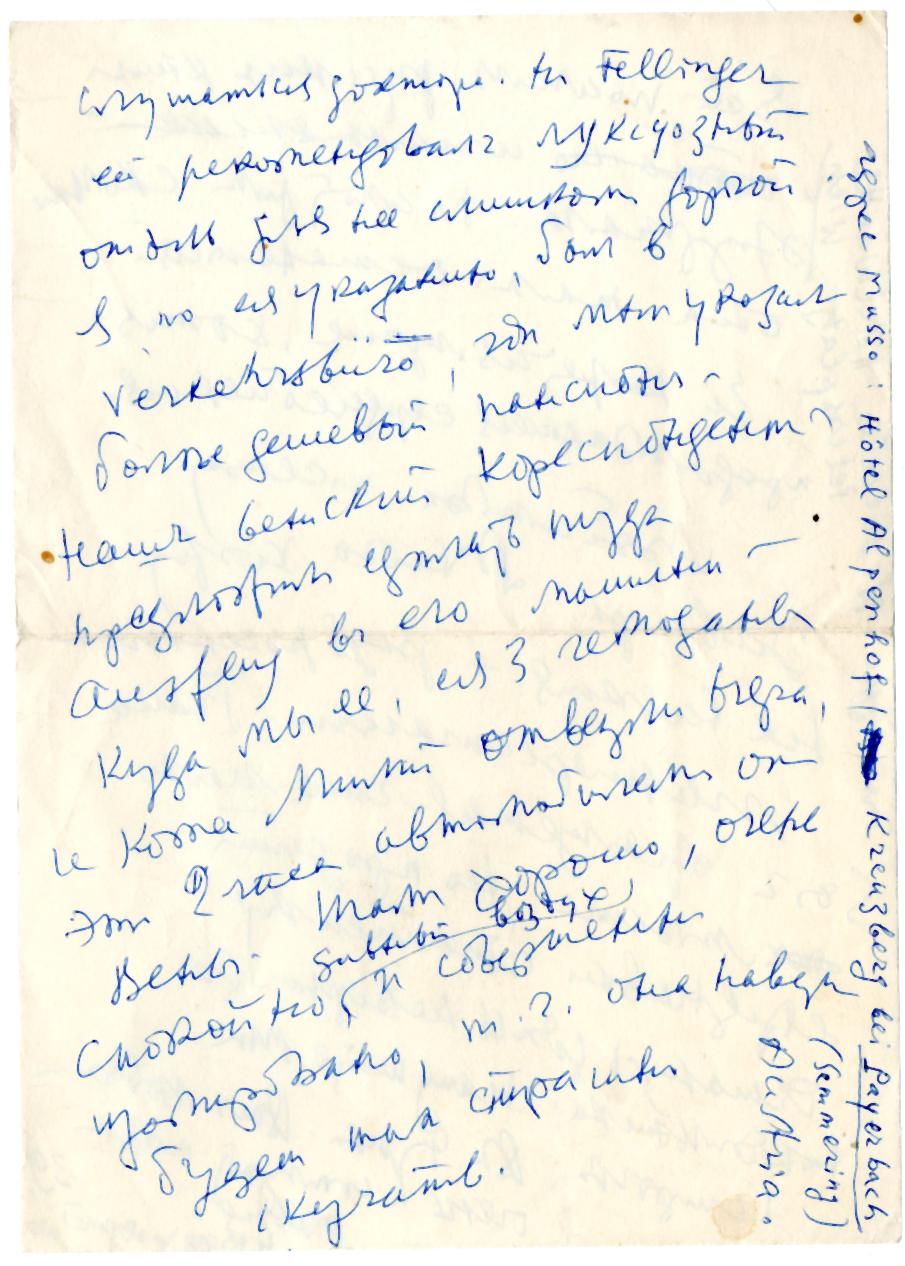 слушаться доктора. Но Fellinger
ей рекомендовалъ луксузный
отель для нее слишком дорогой
Я по его указанию, был в
Verkehrsbüro, где мне указали
более дешевый пансион -
Нашъ венский кореспондентъ
предложил съездить туда
Ausflug в его машине —
Куда мы ее, ея 3 чемоданы
и Кота Микки отвезли вчера,
2 часа автомобилем от
Вены. Там хорошо, очень
дивный воздух,
спокойно и совершенно
изолировано, т. ч. она наверн
будет там страшно
скучать.
адрес Mussi: Hôtel Alpenhof / Kreuzberg bei Payerbach
(Semmering)
Austria.